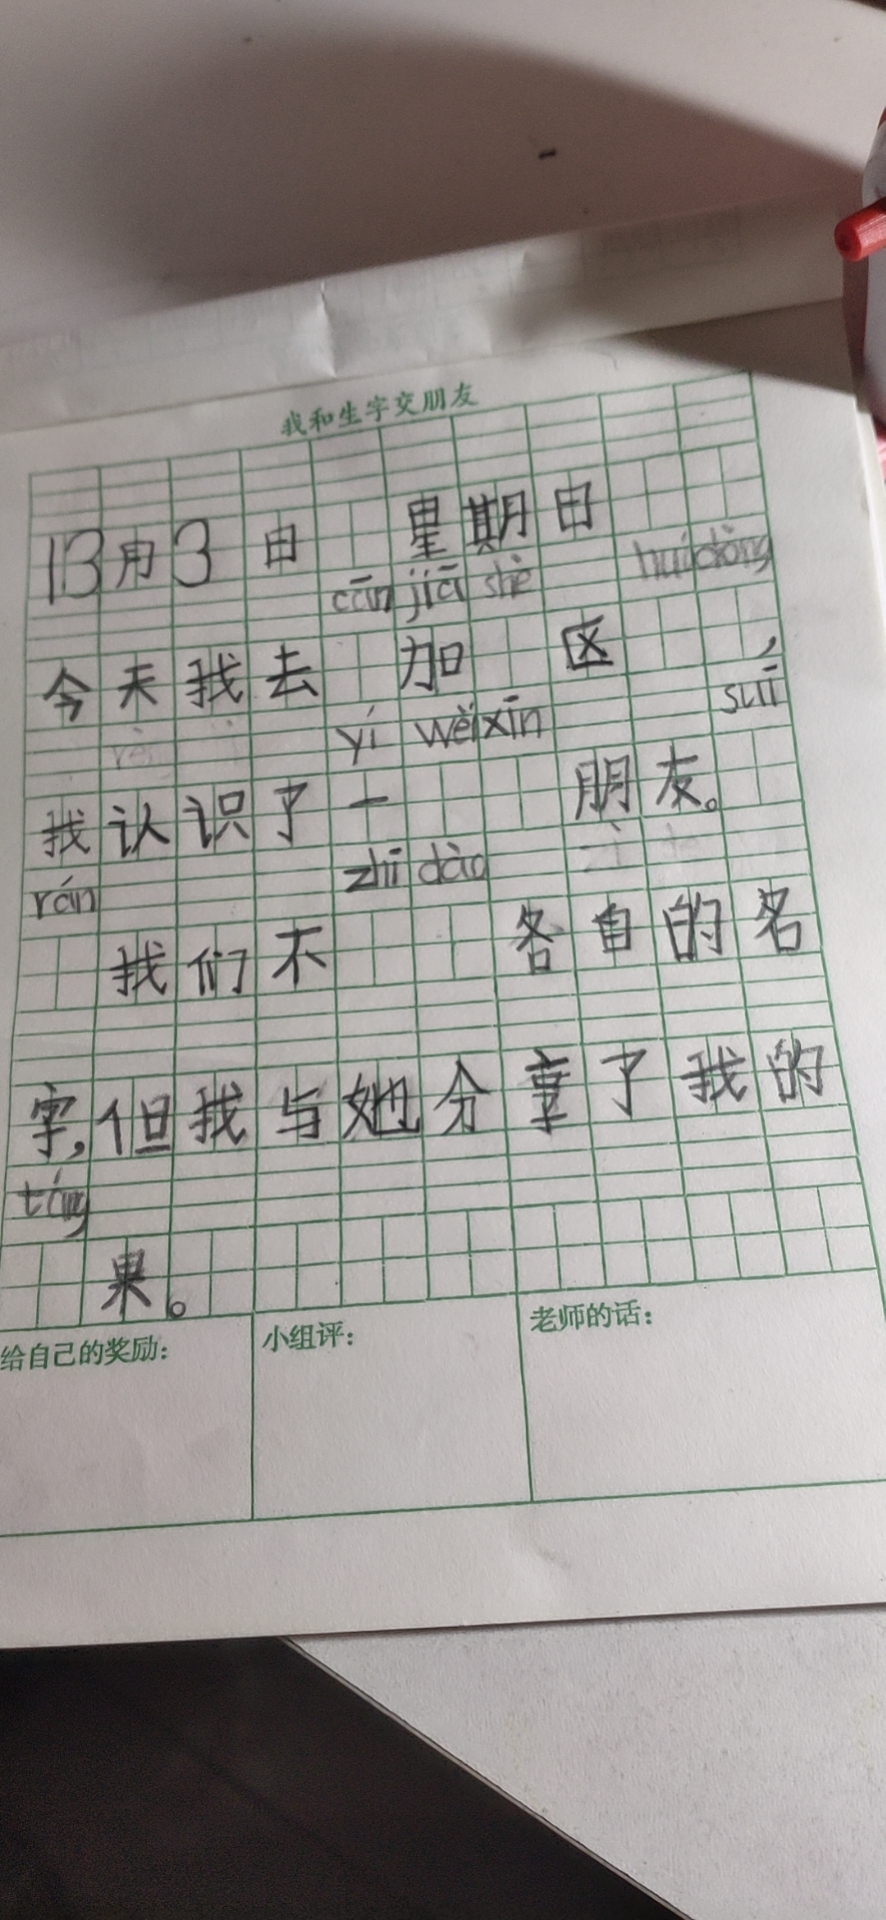 我和生字交朋友
13月3日 星期日
cān jiā shè huì dòng
今天我去 加 区 ，
yí wèi xīn suī
我认识了一 朋友。
rán zhī dào
我们不 各自的名
字，但我与她分享了我的
táng
果。
给自己的奖励：
小组评：
老师的话：